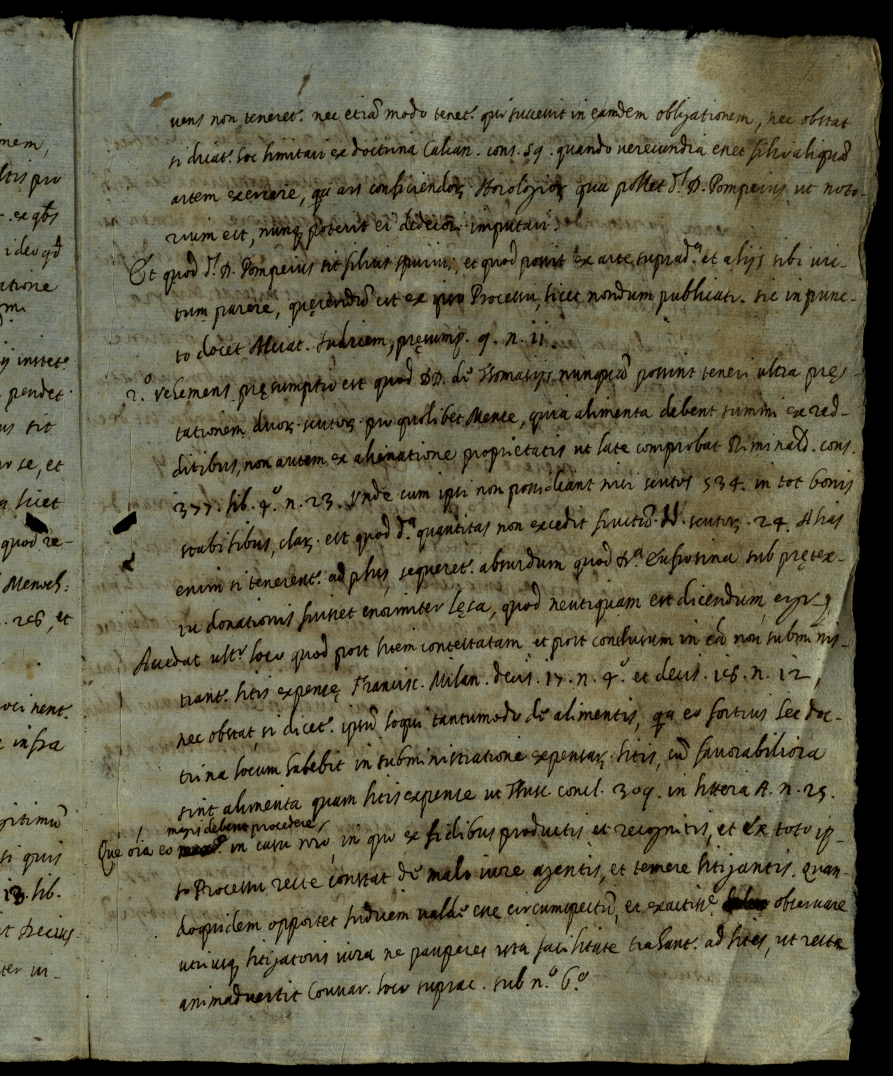 nem,
ltis pro
ex qbs
ideo qd
atione
m.
pendet
us sit
r se, et
licet
quod re-
Menoch:
et
oci nent.
infra
gitimũ
si quis
13. lib.
t Decius
ter vi-
vens non teneret. nec etiã modo tenet. qui successit in eamdem obligationem, nec obstat
si dicat. hoc limitari ex doctrina Calcan. cons. 59. quando verecundia esset filio aliquã
artem exercere, quia ars conficiendor. Horologior. qua pollet d.s D. Pompeius, ut noto-
rium est, nunq̃ poterit ei dedecori imputari;
Et quod d.s D. Pompeius sit filius spurius, et quod possit ex arte suprad.a et alijs sibi vic-
tum parere, querendũ est ex ipso Processu, licet nondum publicati. sic in punc-
to docet Alciat. Iudicem, presump. 9. n. 11.
2.o vehemens presumptio est quod DD. de Thomasijs nunquã possint teneri ultra pres-
tationem duor. scutor. pro quolibet Mense, quia alimenta debent summi ex red-
ditibus, non autem ex alienatione proprietatis ut late comprobat Riminald. cons.
377. lib. 4.o n. 23. Unde cum ipsi non possideant nisi scutos 534. in tot bonis
stabilibus, clar. est quod d.a quantitas non excedit fructũ scutor. 24. Alias
enim si tenerent. ad plus, sequeret. absurdum quod D.a Eufrosina sub pretex-
tu donationis fuisset enormiter lesa, quod neutiquam est dicendum, ergo
Accedat ult.o loco quod post litem contestatam et post conclusum in cã non submini-
trant. litis expense Francisc. Milan. decis. 17. n. 4.o et decis. 18. n. 12,
nec obstat, si dicet. ipsũ loqui tantumodo de alimentis, qa eo fortius hec doc-
trina locum habebit in subministratione expensar. litis, cũ favorabiliora
sint alimenta quam litis expense ut Thusc. concl. 309. in littera A. n. 25.
magis debent procedere
Que oĩa eo in casu nr̃o, in quo ex fidibus productis et recognitis, et ex toto ip-
so Processu recte constat de malo iure agentis, et temere litigantis. Quan-
doquidem opportet Iudicem valde esse circumspectũ, et exactissime observare
utriusq. litigatoris iura ne pauperes ista facilitate trahant. ad lites, ut recte
animadvertit Couvar. loco suprac. sub n.o 6.o